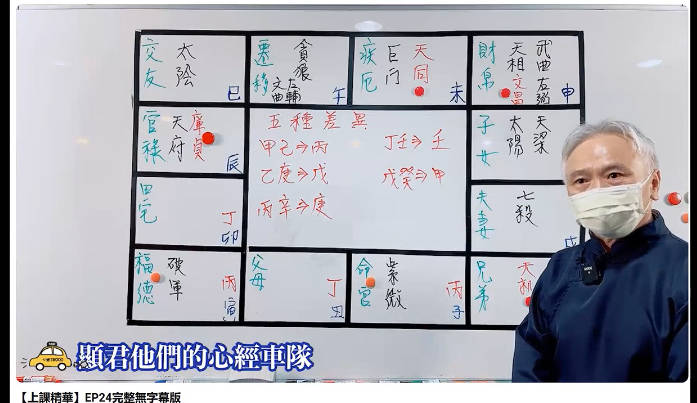 交友
太陰
巳
遷移
貪狼
左輔
文曲
午
疾厄
巨門
天同
未
財帛
武曲
天相
文昌
右弼
申
官祿
天府
廉貞
辰
五種差異
甲己⇒丙
丁壬⇒壬
乙庚⇒戊
戊癸⇒甲
丙辛⇒庚
子女
天梁
太陽
田宅
丁
卯
夫妻
七殺
福德
破軍
丙
寅
父母
丁
丑
命宮
紫微
丙
子
兄弟
天機
顯君他們的心經車隊
【上課精華】EP24完整無字幕版